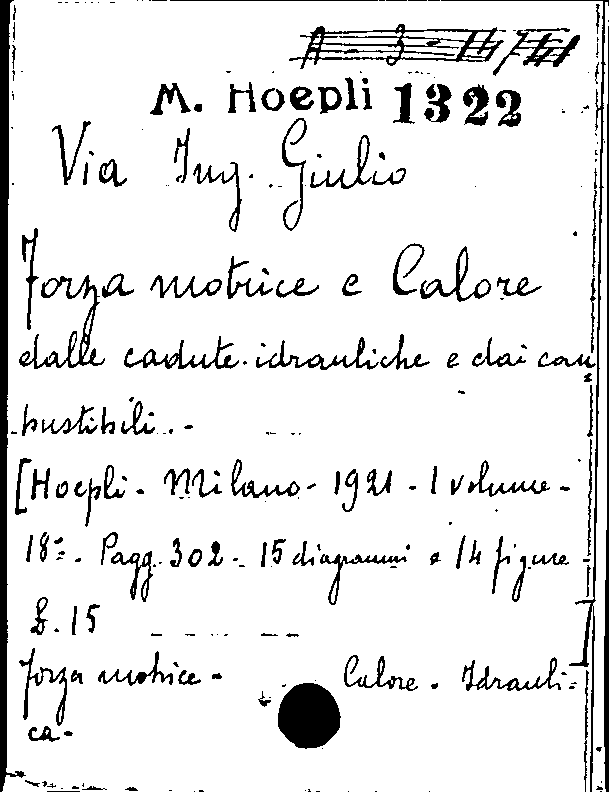 A - 3 - 14741
M. Hoepli 1322
Via Ing. Giulio
Forza motrice e Calore
dalle cadute idrauliche e dai com=
bustibili.-
[Hoepli - Milano - 1921 - 1 volume -
18° - Pagg. 302 - 15 diagrammi e 14 figure -
L. 15 ]
Forza motrice - Calore - Idrauli=
ca -